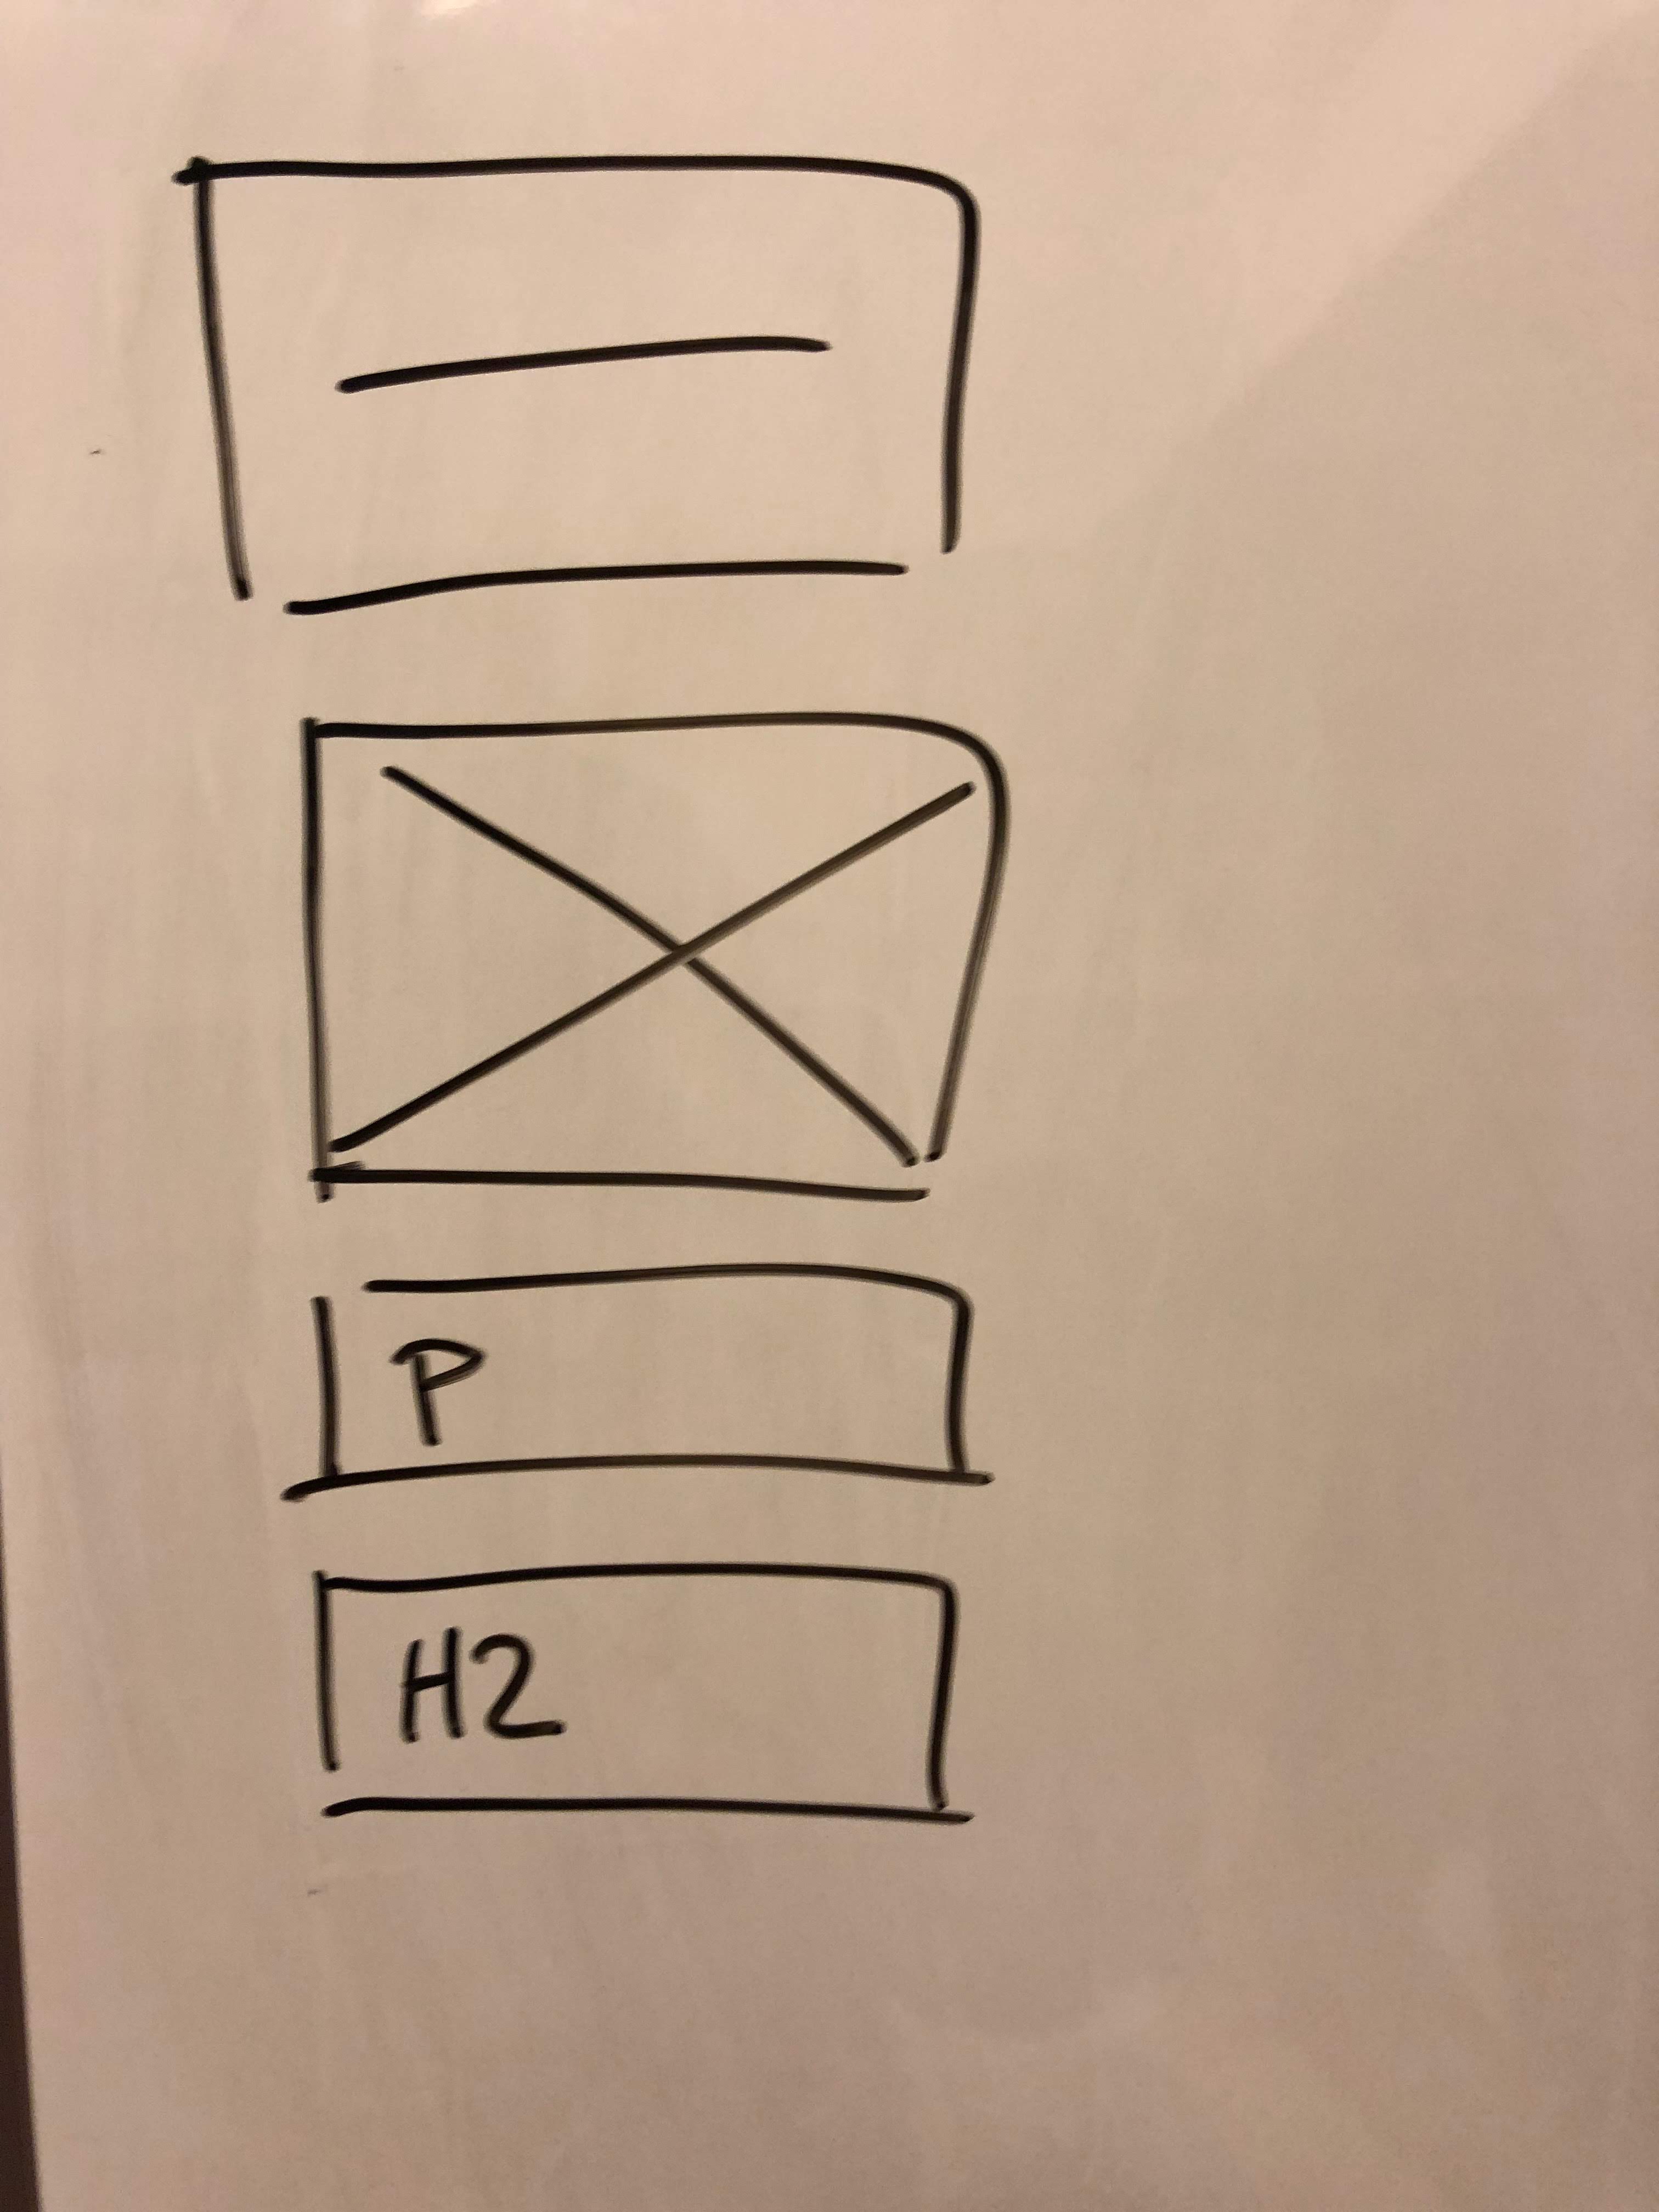 P
H2